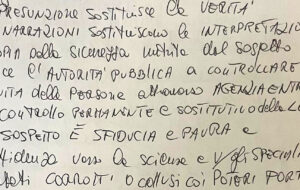 PRESUNZIONE SOSTITUISCE LA VERITÀ
NARRAZIONI SOSTITUISCONO le INTERPRETAZIO
della sicurezza del sospetto
ce l'AUTORITÀ PUBBLICA a CONTROLLARE
VITA delle PERSONE attraverso AGENZIA ENTR
CONTROLLO PERMANENTE e SOSTITUTIVO della
SOSPETTO È SFIDUCIA e PAURA e
fidenza verso la scienza e gli SPECIALI
fatti CORROTTI O collusi coi POTERI FORT